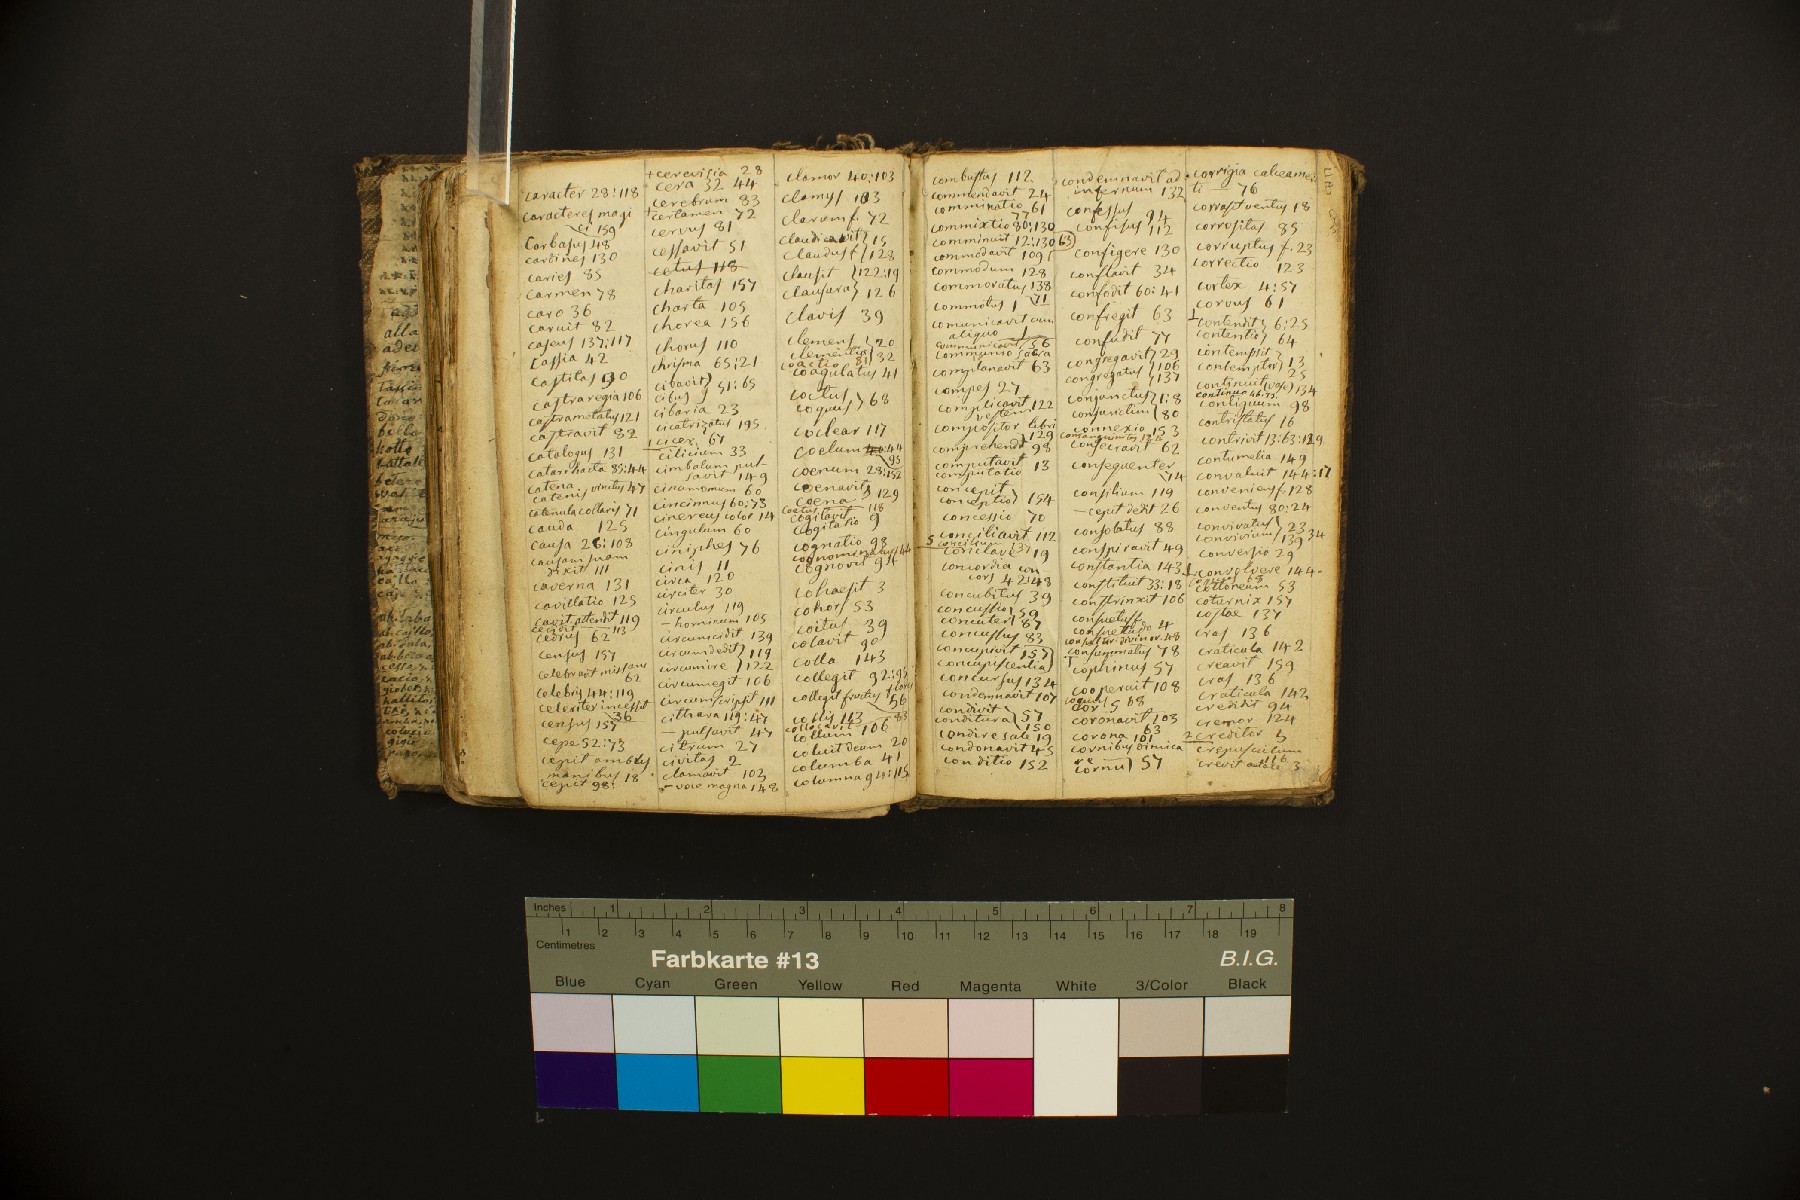 caracter 28:118
caracteres magi
ci 159
Carbasus 48
cardines 130
caries 85
carmen 78
caro 36
caruit 82
caseus 137:117
Cassia 42
castitas 130
castra regia 106
castrametatus 121
castravit 82
catalogus 131
catarrhacta 85:44
catena
catenis vinctus 47
catenula collaris 71
cauda 125
causa 28:108
causam suam
dixit 111
caverna 131
cavillatio 125
cavit attendit 119
cedrus 62
census 157
celebravit missam
62
celebris 44:119
celeriter incessit
36
census 157
cepe 52:73
cepit ambabus
manibus 18
cepit 98
+cerevisia 28
cera 32 44
cerebrum 83
certamen 72
cervus 81
cessavit 51
cetus 118
charitas 157
charta 105
chorea 156
chorus 110
chrisma 65:21
cibavit
cibus 51:65
cibaria 23
cicatrizatus 195
cicer 67
cilicium 33
cimbalum pul-
savit 149
cinamomum 60
cincinnus 60:73
cinereus color 14
cingulum 60
ciniphes 76
cinis 11
circa 120
circiter 30
circulus 119
- hornicum 105
circumcidit 139
circumdedit 119
circumire 122
circumegit 106
circumscripsit 111
cithara 119:47
- pulsavit 47
citrum 27
civitas 2
clamavit 103
- voce magna 148
clamor 40:103
clamys 103
clavum f. 72
claudicavit 15
claudus f. 128
clausit 122:19
clausura 126
clavis 39
clemens 20
clementia 32
coactio 81
coagulatus 41
coctus
coquus 68
coclear 117
coelum 40:44
95
coenum 28:152
coenavit
coena 129
coetus 118
cogitavit
cogitatio 9
cognatio 98
cognominatus 44
cognovit 94
cohaesit 3
cohors 53
coitus 39
colavit 90
colla 143
collegit 92:95
collegit fructus
56
collis 113
collum 106
coluit deum 20
columba 41
columna 94:115
combustus 112
commendavit 24
comminatio 61
77
commixtio 80:130
comminuit 12:130 63
commodavit 109
commodum 128
commoratus 138
commotus 1 71
comunicavit cum
aliquo 1
communicavit 56
communio sacra
complanavit 63
compes 27
complicavit
vestem 122
compositor libri
129
comprehendit 98
computavit 13
computatio
concepit
conceptio 154
concessio 70
conciliavit 112
concilium 137
conclave 19
concordia con
cors 42:48
concubitus 39
concussio 59
concutere 87
concussus 83
concupivit 157
concupiscentia
concursus 134
condemnavit 107
condivit
conditura 57
150
condire sale 19
condonavit 45
conditio 152
condemnavit ad
infernum 132
confessus 94
confisus 112
configere 130
conflavit 34
confodit 60:41
confregit 63
confudit 77
congregavit 29
106
congregatus 137
conjunctus 1:8
conjunctum 80
connexio 153
consecravit 62
consequenter
14
consilium 119
- cepit dedit 26
consolatus 88
conspiravit 49
constantia 143
constituit 33:18
constrinxit 106
consuetus
consuetudo 4
consummatus 78
cophinus 57
cooperuit 108
coquus 68
cor 5
coronavit 103
63
corona 101
cornibus dimica
re
cornu 57
corrigia calceamen
ti 76
corrasit ventus 18
corrositas 85
corruptus f. 23
correctio 123
cortex 4:57
corvus 61
contendit 6:25
contentio 64
contempsit
contemptor 13
25
continuit (vas) 134
continuo 46:73
contiguum 98
contristatus 16
contrivit 13:63:129
contumelia 149
convaluit 144:17
conveniens f. 128
conventus 80:24
convivatus 23
convivium 139 34
conversio 29
convolvere 144
cottoneum 53
coturnix 157
costae 137
cras 136
craticula 142
creavit 159
cras 136
craticula 142
credidit 94
cremor 124
2 creditor 5
crepusculum
116
crevit aetate 3
Inches 1 2 3 4 5 6 7 8
1 2 3 4 5 6 7 8 9 10 11 12 13 14 15 16 17 18 19
Centimetres
Farbkarte #13 B.I.G.
Blue Cyan Green Yellow Red Magenta White 3/Color Black